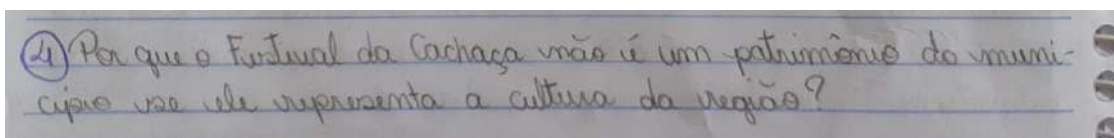 ④ Por que o Festival da Cachaça não é um patrimônio do muni-
cípio se ele representa a cultura da região?